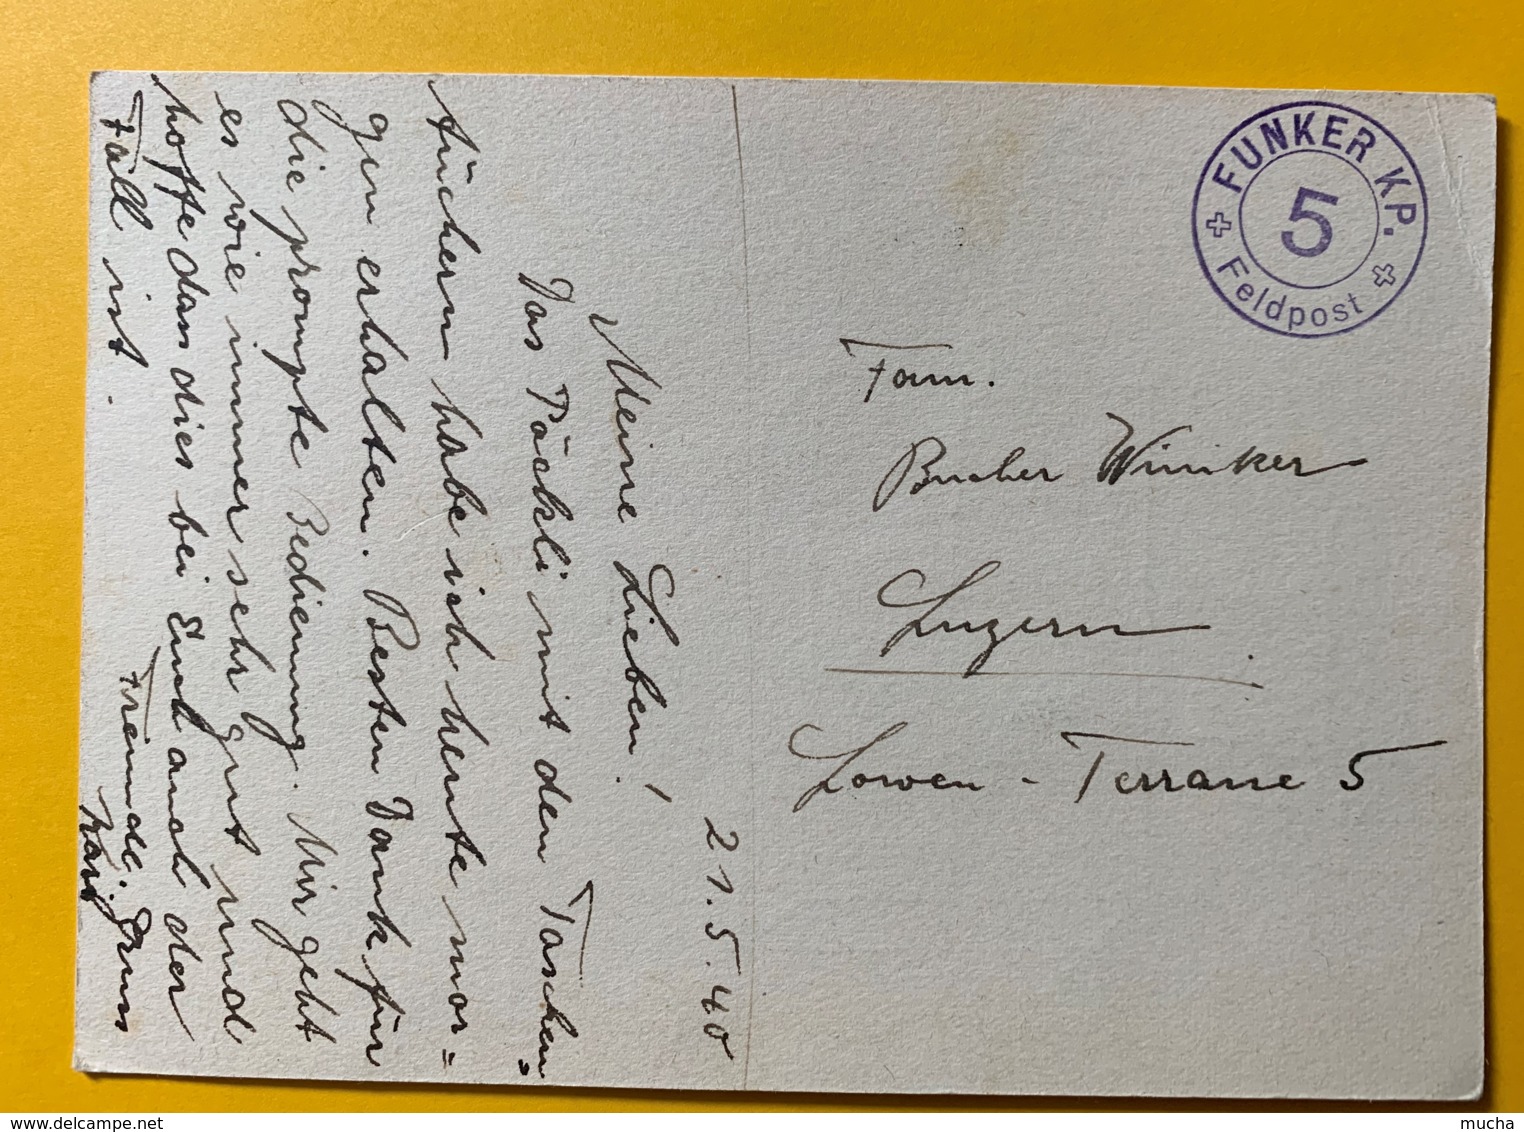 FUNKER KP.
5
Feldpost
Fam.
Bucher Winiker
Luzern
Löwen - Terrasse 5
21.5.40
Meine Lieben!
Das Päckli mit den Taschen=
tüchern habe ich heute mor=
gen erhalten. Besten Dank für
die prompte Bedienung. Mir geht
es wie immer sehr gut und
hoffe dass dies bei Euch auch der
Fall ist.
Freundl. Gruss
mucha